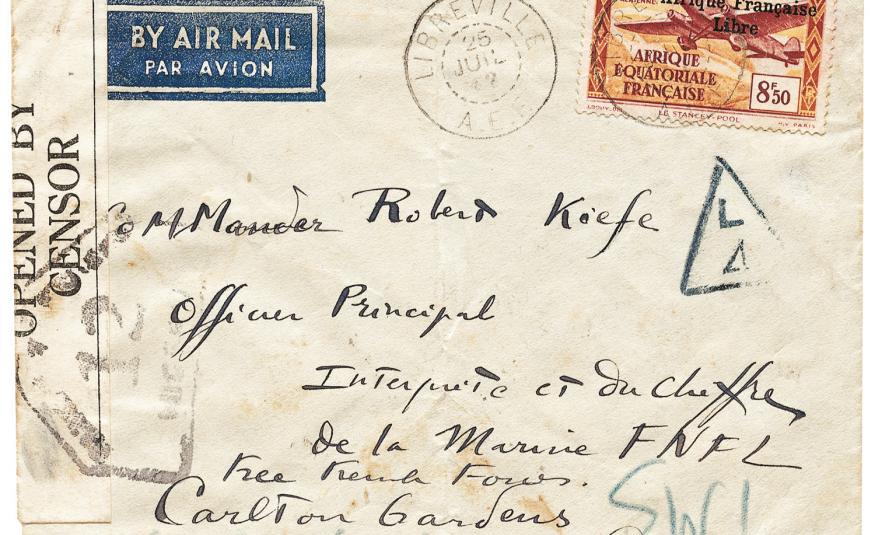 BY AIR MAIL
PAR AVION
LIBREVILLE
25
JUIL
42
A.E.F
Afrique Française
Libre
AFRIQUE
ÉQUATORIALE
FRANÇAISE
8F50
LE STANLEY-POOL
H.V. PARIS
OPENED BY
CENSOR
12
CoMMander Robert Kiefe
L
Δ
Officier Principal
Interprète et du Chiffre
de la Marine FNFL
Free French Forces.
Carlton Gardens
SW1